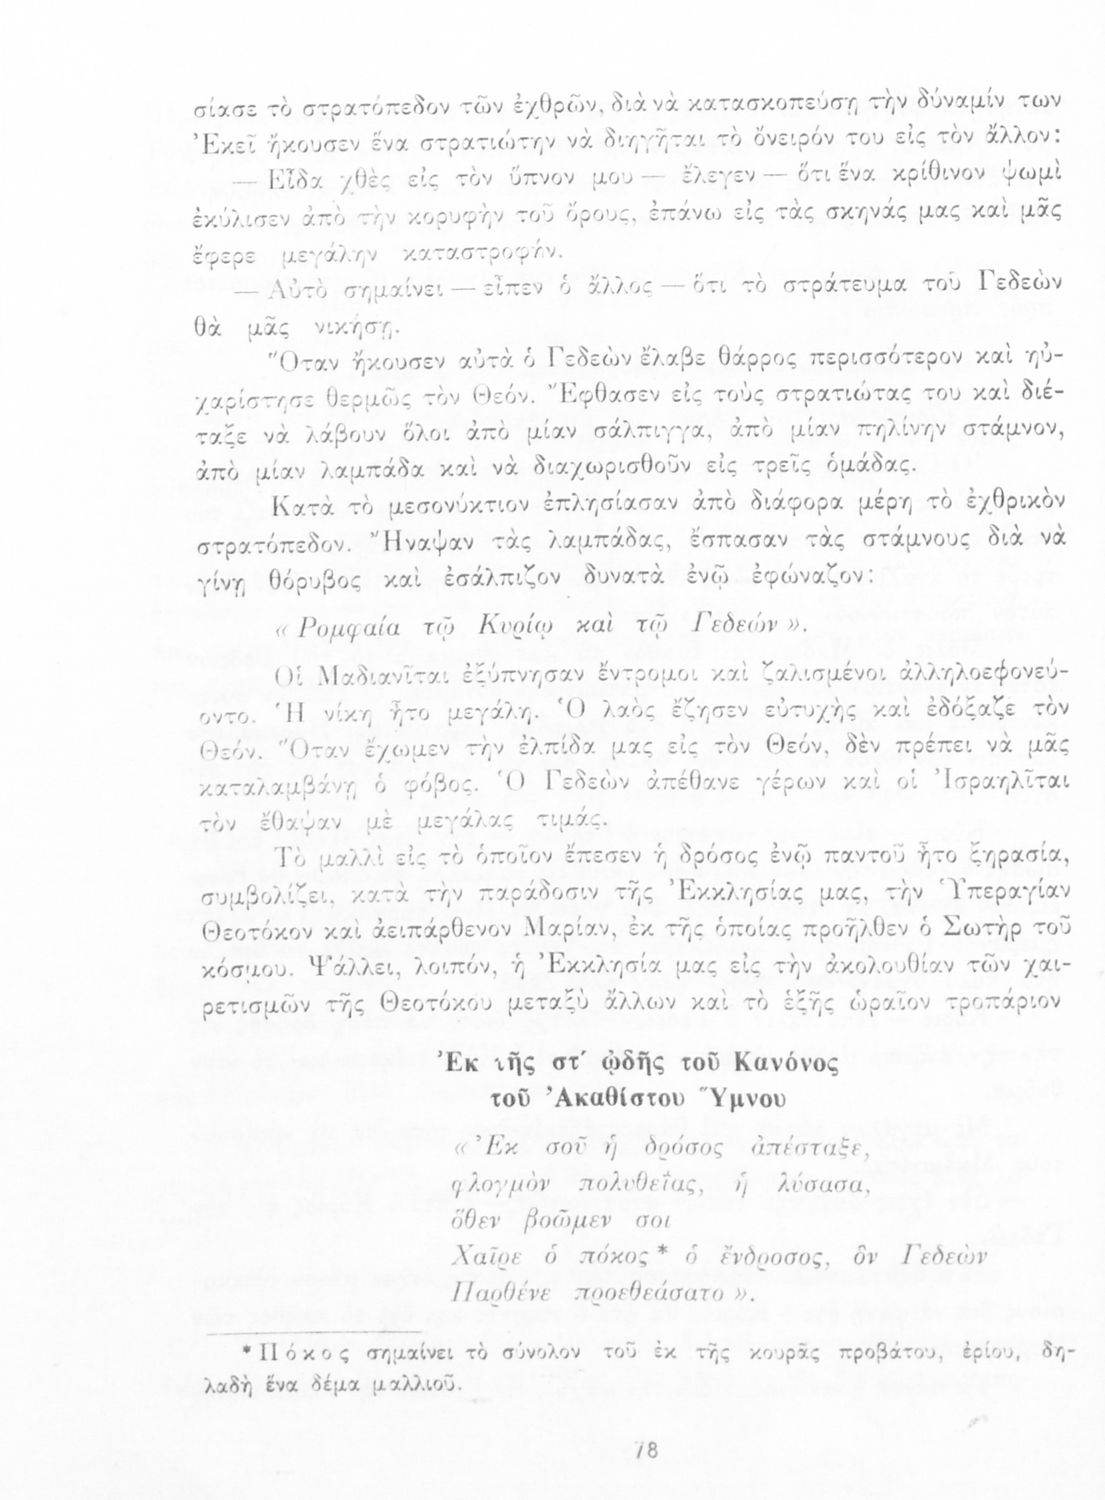 σίασε τὸ στρατόπεδον τῶν ἐχθρῶν, διὰ νὰ κατασκοπεύσῃ τὴν δύναμίν των
Ἐκεῖ ἤκουσεν ἕνα στρατιώτην νὰ διηγῆται τὸ ὄνειρόν του εἰς τὸν ἄλλον:
— Εἶδα χθὲς εἰς τὸν ὕπνον μου — ἔλεγεν — ὅτι ἕνα κρίθινον ψωμὶ
ἐκύλισεν ἀπὸ τὴν κορυφὴν τοῦ ὄρους, ἐπάνω εἰς τὰς σκηνάς μας καὶ μᾶς
ἔφερε μεγάλην καταστροφήν.
— Αὐτὸ σημαίνει — εἶπεν ὁ ἄλλος — ὅτι τὸ στράτευμα τοῦ Γεδεὼν
θὰ μᾶς νικήσῃ.
Ὅταν ἤκουσεν αὐτὰ ὁ Γεδεὼν ἔλαβε θάρρος περισσότερον καὶ ηὐ-
χαρίστησε θερμῶς τὸν Θεόν. Ἔφθασεν εἰς τοὺς στρατιώτας του καὶ διέ-
ταξε νὰ λάβουν ὅλοι ἀπὸ μίαν σάλπιγγα, ἀπὸ μίαν πηλίνην στάμνον,
ἀπὸ μίαν λαμπάδα καὶ νὰ διαχωρισθοῦν εἰς τρεῖς ὁμάδας.
Κατὰ τὸ μεσονύκτιον ἐπλησίασαν ἀπὸ διάφορα μέρη τὸ ἐχθρικὸν
στρατόπεδον. Ἤναψαν τὰς λαμπάδας, ἔσπασαν τὰς στάμνους διὰ νὰ
γίνῃ θόρυβος καὶ ἐσάλπιζον δυνατὰ ἐνῷ ἐφώναζον:
« Ρομφαία τῷ Κυρίῳ καὶ τῷ Γεδεών ».
Οἱ Μαδιανῖται ἐξύπνησαν ἔντρομοι καὶ ζαλισμένοι ἀλληλοεφονεύ-
οντο. Ἡ νίκη ἦτο μεγάλη. Ὁ λαὸς ἔζησεν εὐτυχὴς καὶ ἐδόξαζε τὸν
Θεόν. Ὅταν ἔχωμεν τὴν ἐλπίδα μας εἰς τὸν Θεόν, δὲν πρέπει νὰ μᾶς
καταλαμβάνῃ ὁ φόβος. Ὁ Γεδεὼν ἀπέθανε γέρων καὶ οἱ Ἰσραηλῖται
τὸν ἔθαψαν μὲ μεγάλας τιμάς.
Τὸ μαλλὶ εἰς τὸ ὁποῖον ἔπεσεν ἡ δρόσος ἐνῷ παντοῦ ἦτο ξηρασία,
συμβολίζει, κατὰ τὴν παράδοσιν τῆς Ἐκκλησίας μας, τὴν Ὑπεραγίαν
Θεοτόκον καὶ ἀειπάρθενον Μαρίαν, ἐκ τῆς ὁποίας προῆλθεν ὁ Σωτὴρ τοῦ
κόσμου. Ψάλλει, λοιπόν, ἡ Ἐκκλησία μας εἰς τὴν ἀκολουθίαν τῶν χαι-
ρετισμῶν τῆς Θεοτόκου μεταξὺ ἄλλων καὶ τὸ ἑξῆς ὡραῖον τροπάριον
Ἐκ τῆς στ´ ᾠδῆς τοῦ Κανόνος
τοῦ Ἀκαθίστου Ὕμνου
« Ἐκ σοῦ ἡ δρόσος ἀπέσταξε,
φλογμὸν πολυθεΐας, ἡ λύσασα,
ὅθεν βοῶμεν σοι
Χαῖρε ὁ πόκος * ὁ ἔνδροσος, ὃν Γεδεὼν
Παρθένε προεθεάσατο ».
* Πόκος σημαίνει τὸ σύνολον τοῦ ἐκ τῆς κουρᾶς προβάτου, ἐρίου, δη-
λαδὴ ἕνα δέμα μαλλιοῦ.
78